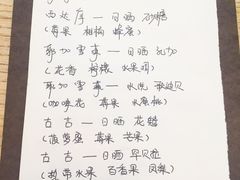 西达摩一日晒
(莓果 柑橘 蜂蜜)
耶加雪菲一日晒 孔加
(花香 柠檬 水果
耶加雪菲一水洗
(咖啡花 莓果 水蜜桃)
古吉一日晒 花魁
(菠萝蜜 莓果 芒果)
古吉一日晒 罕贝拉
(热带水果 百香果 凤梨)